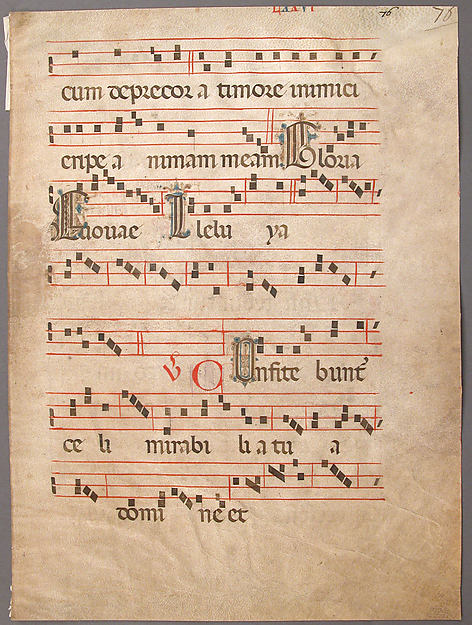 LXXVI 76 76
cum deprecor a timore inimici
eripe a nimam meam Gloria
Euouae Alleluya
V Confitebunt
ce li mirabi li a tu a
domi ne et